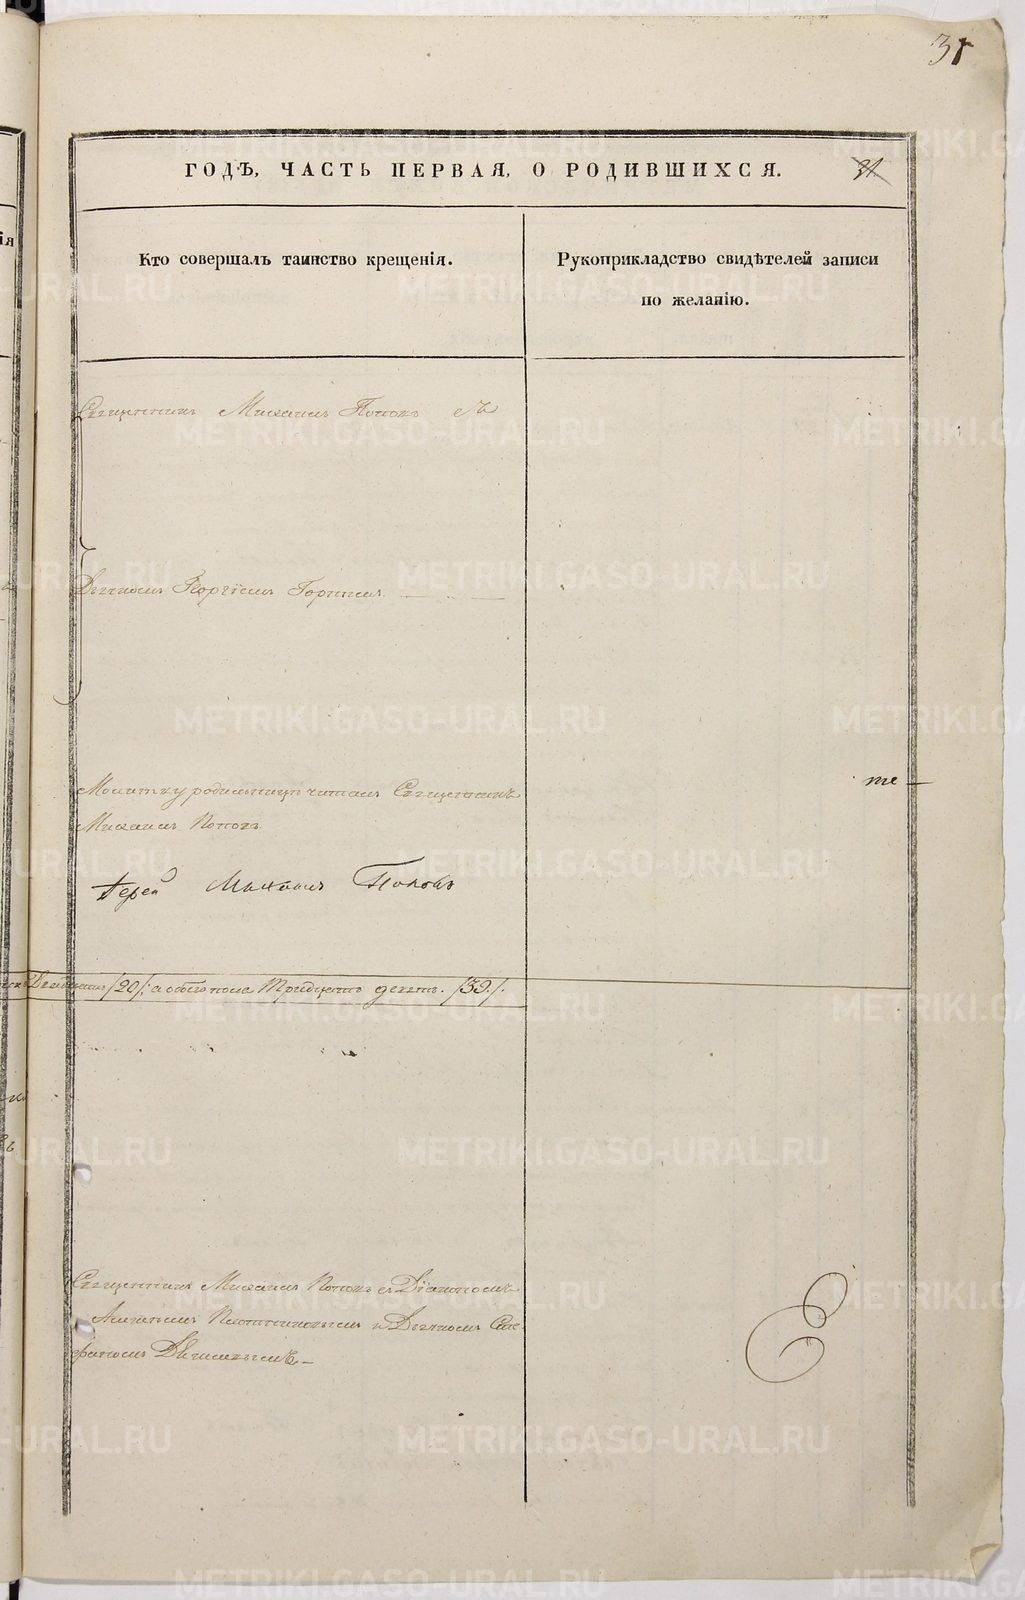 31
ГОДЪ, ЧАСТЬ ПЕРВАЯ, О РОДИВШИХСЯ.
31
Кто совершалъ таинство крещенія.
Рукоприкладство свидѣтелей записи
по желанію.
Священникъ Михаилъ Поповъ съ
Дьячкомъ Георгіемъ
Молитву родильницѣ читалъ Священникъ
Михаилъ Поповъ
те
Іерей Михаилъ Поповъ
Двадцать /20/; а обоего пола Тридцать девять. /39/.
Священникъ Михаилъ Поповъ съ Діакономъ
и Дьячкомъ Сте
фаномъ
METRIKI.GASO-URAL.RU